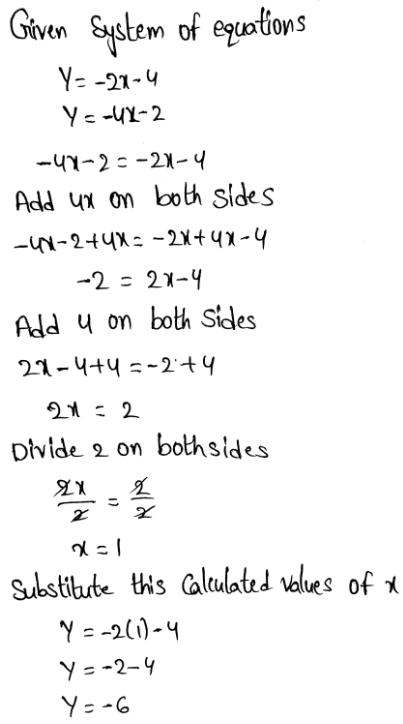 Given System of equations
Y = -2x-4
Y = -4x-2
-4x-2 = -2x-4
Add 4x on both sides
-4x-2+4x = -2x+4x-4
-2 = 2x-4
Add 4 on both sides
2x-4+4 = -2+4
2x = 2
Divide 2 on both sides
2x/2 = 2/2
x = 1
Substitute this calculated values of x
Y = -2(1)-4
Y = -2-4
Y = -6